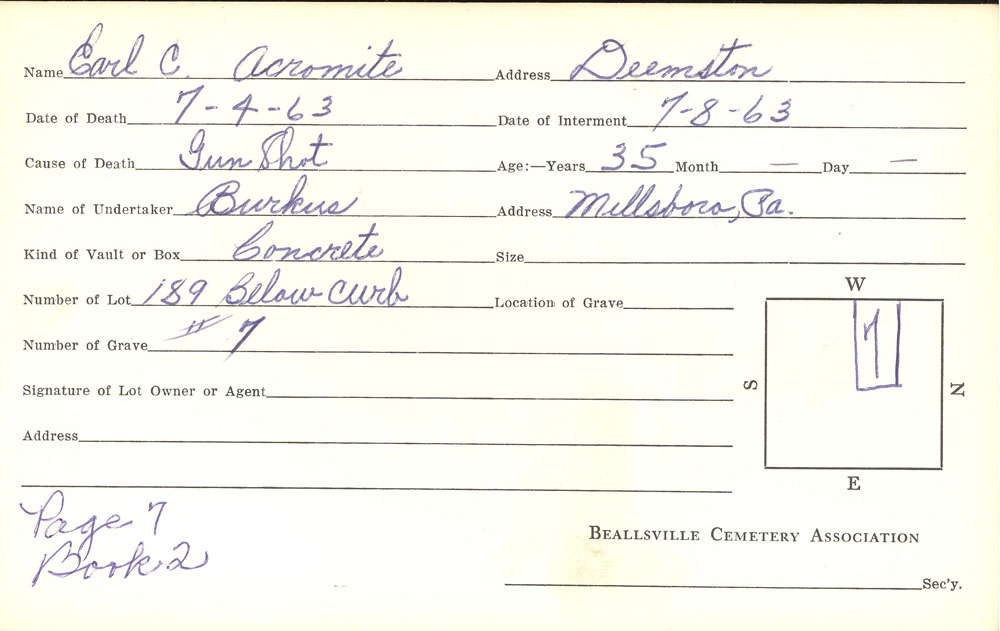 Name Earl C. Acromite Address Deemston
Date of Death 7-4-63 Date of Interment 7-8-63
Cause of Death Gun Shot Age:—Years 35 Month — Day —
Name of Undertaker Burkus Address Millsboro, Pa.
Kind of Vault or Box Concrete Size
Number of Lot 189 Below Curb Location of Grave
Number of Grave # 7
Signature of Lot Owner or Agent
Address
W
7
S
N
E
Page 7
Book 2
BEALLSVILLE CEMETERY ASSOCIATION
Sec'y.